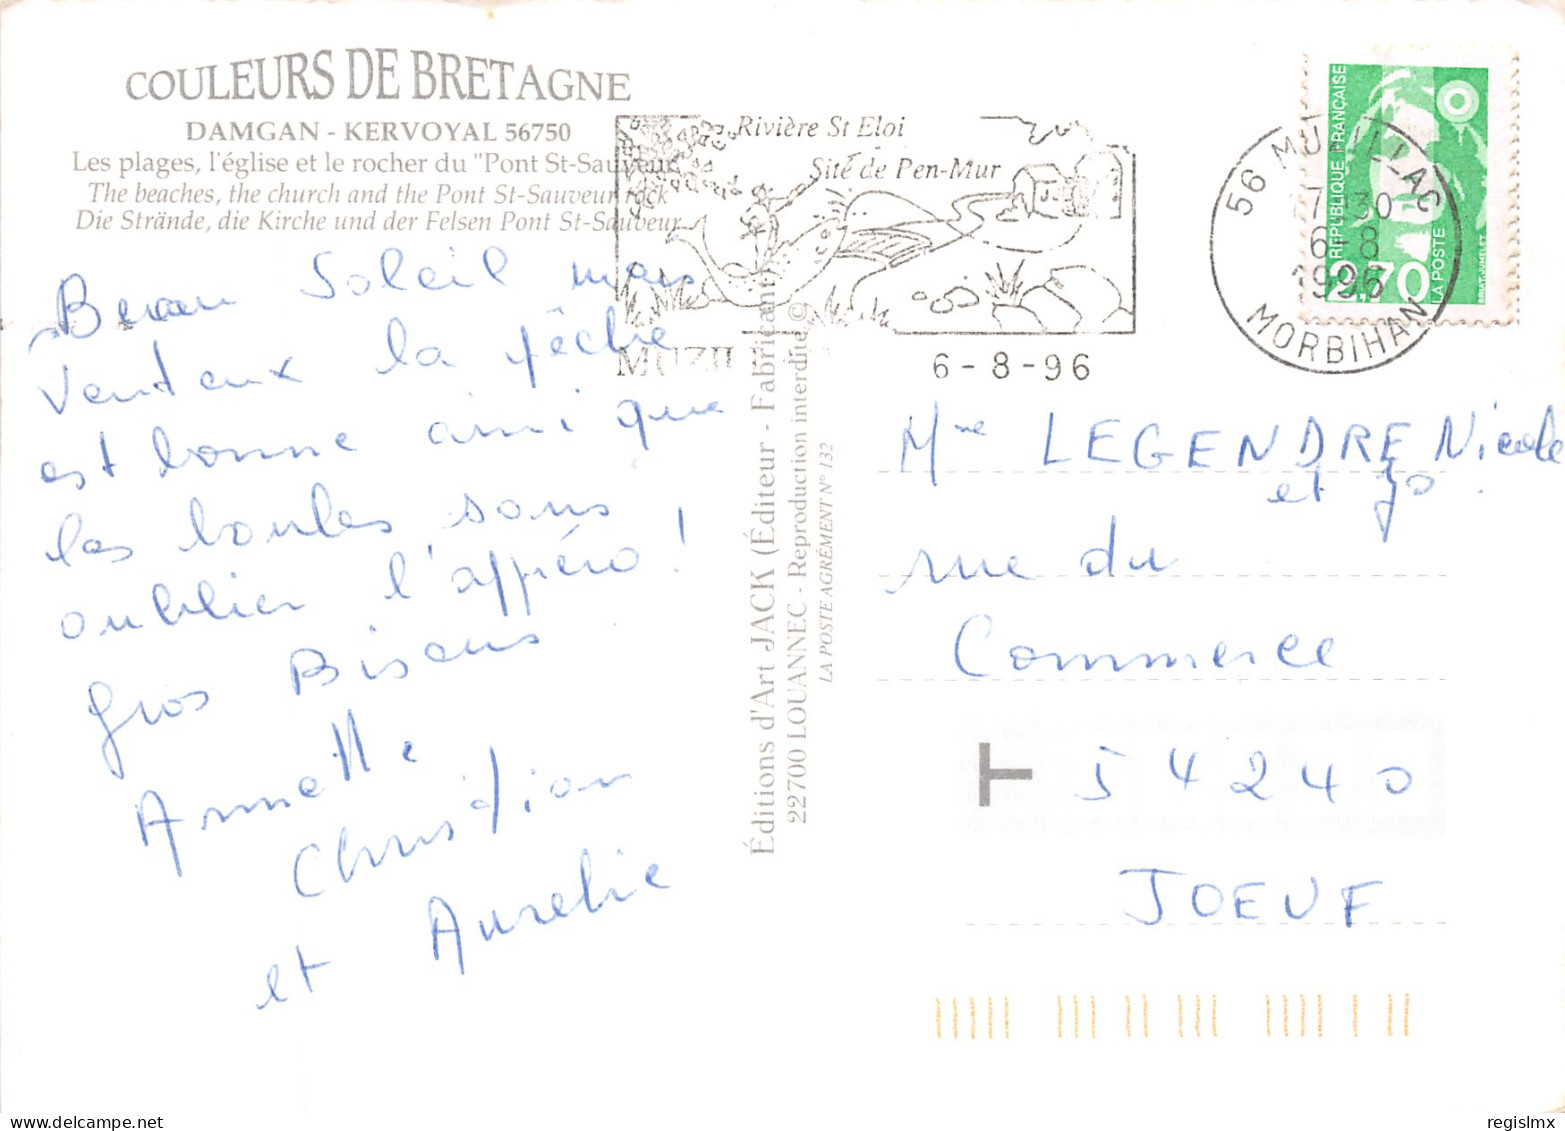 COULEURS DE BRETAGNE
DAMGAN - KERVOYAL 56750
Les plages, l'église et le rocher du "Pont St-Sauveur"
The beaches, the church and the Pont St-Sauveur rock
Die Strände, die Kirche und der Felsen Pont St-Sauveur
Beau Soleil mais
venteux la pêche
est bonne ainsi que
les boules sans
oublier l'appéro !
gros Bisous
Annette
Christian
et Aurelie
Rivière St Eloi
Site de Pen-Mur
MUZILL
6-8-96
56 MUZILLAC
7 H30
6-8
1996
MORBIHAN
RÉPUBLIQUE FRANÇAISE
2,70
LA POSTE
Éditions d'Art JACK (Éditeur - Fabricant)
22700 LOUANNEC - Reproduction interdite ©
LA POSTE AGRÉMENT N° 132
Mme LEGENDRE Nicole
et Jo
rue du
Commerce
T 54240
JOEUF
delcampe.net
regislmx